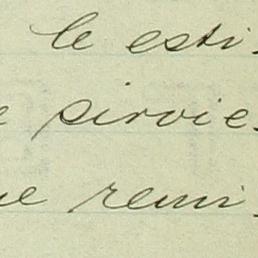 le esti-
e sirvie-
ue remi-